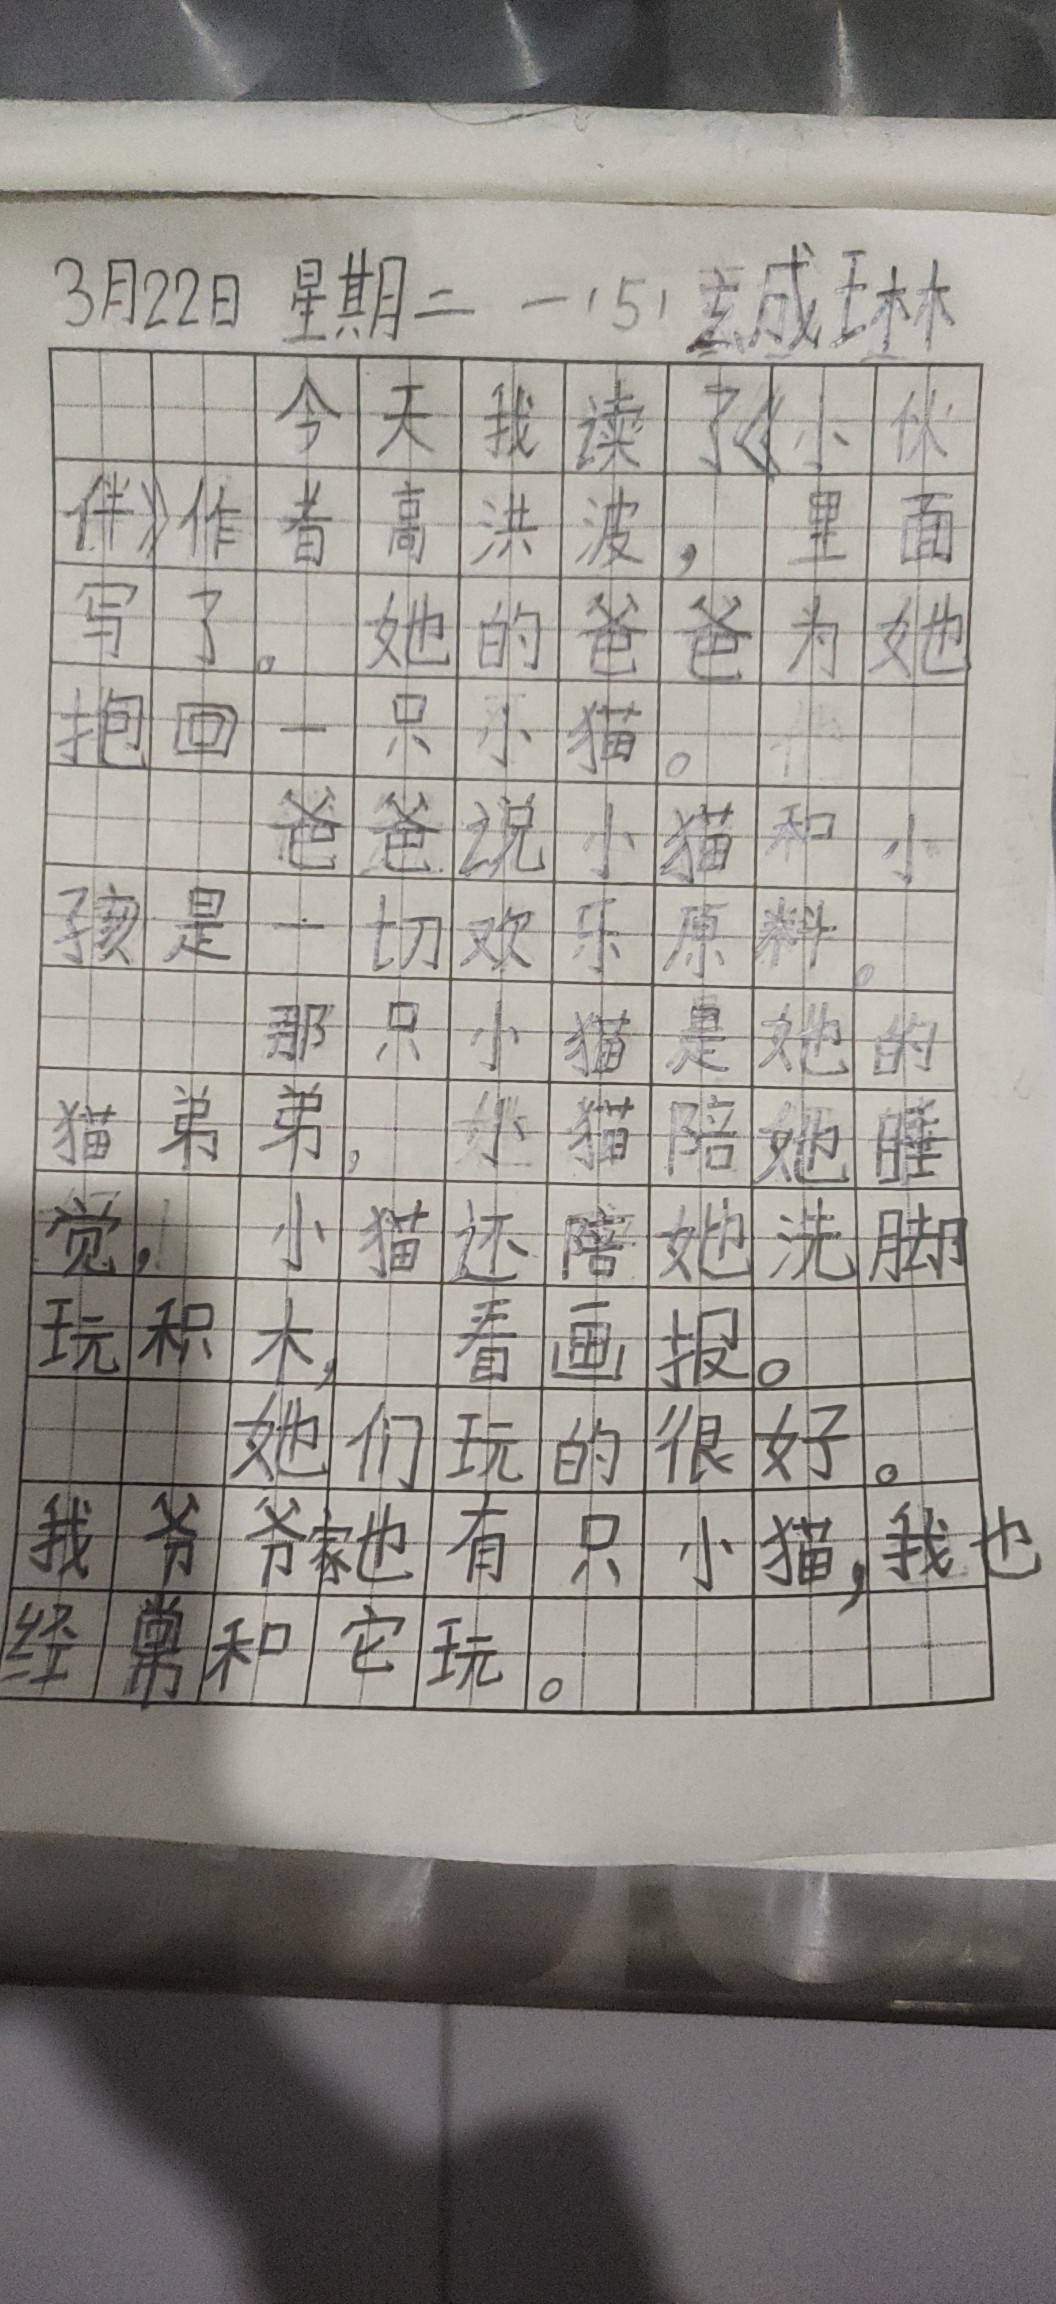 3月22日 星期二 一(5) 玄成琳
今天我读了《小伙
伴》作者高洪波，里面
写了。她的爸爸为她
抱回一只小猫。
爸爸说小猫和小
孩是一切欢乐原料。
那只小猫是她的
猫弟弟，小猫陪她睡
觉，小猫还陪她洗脚
玩积木，看画报。
她们玩的很好。
我爷爷家也有只小猫，我也
经常和它玩。